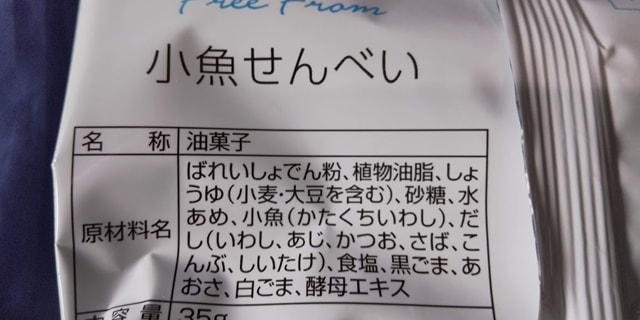 Free From
小魚せんべい
名称 油菓子
原材料名 ばれいしょでん粉、植物油脂、しょ
うゆ(小麦・大豆を含む)、砂糖、水
あめ、小魚(かたくちいわし)、だ
し(いわし、あじ、かつお、さば、こ
んぶ、しいたけ)、食塩、黒ごま、あ
おさ、白ごま、酵母エキス
内容量 35g